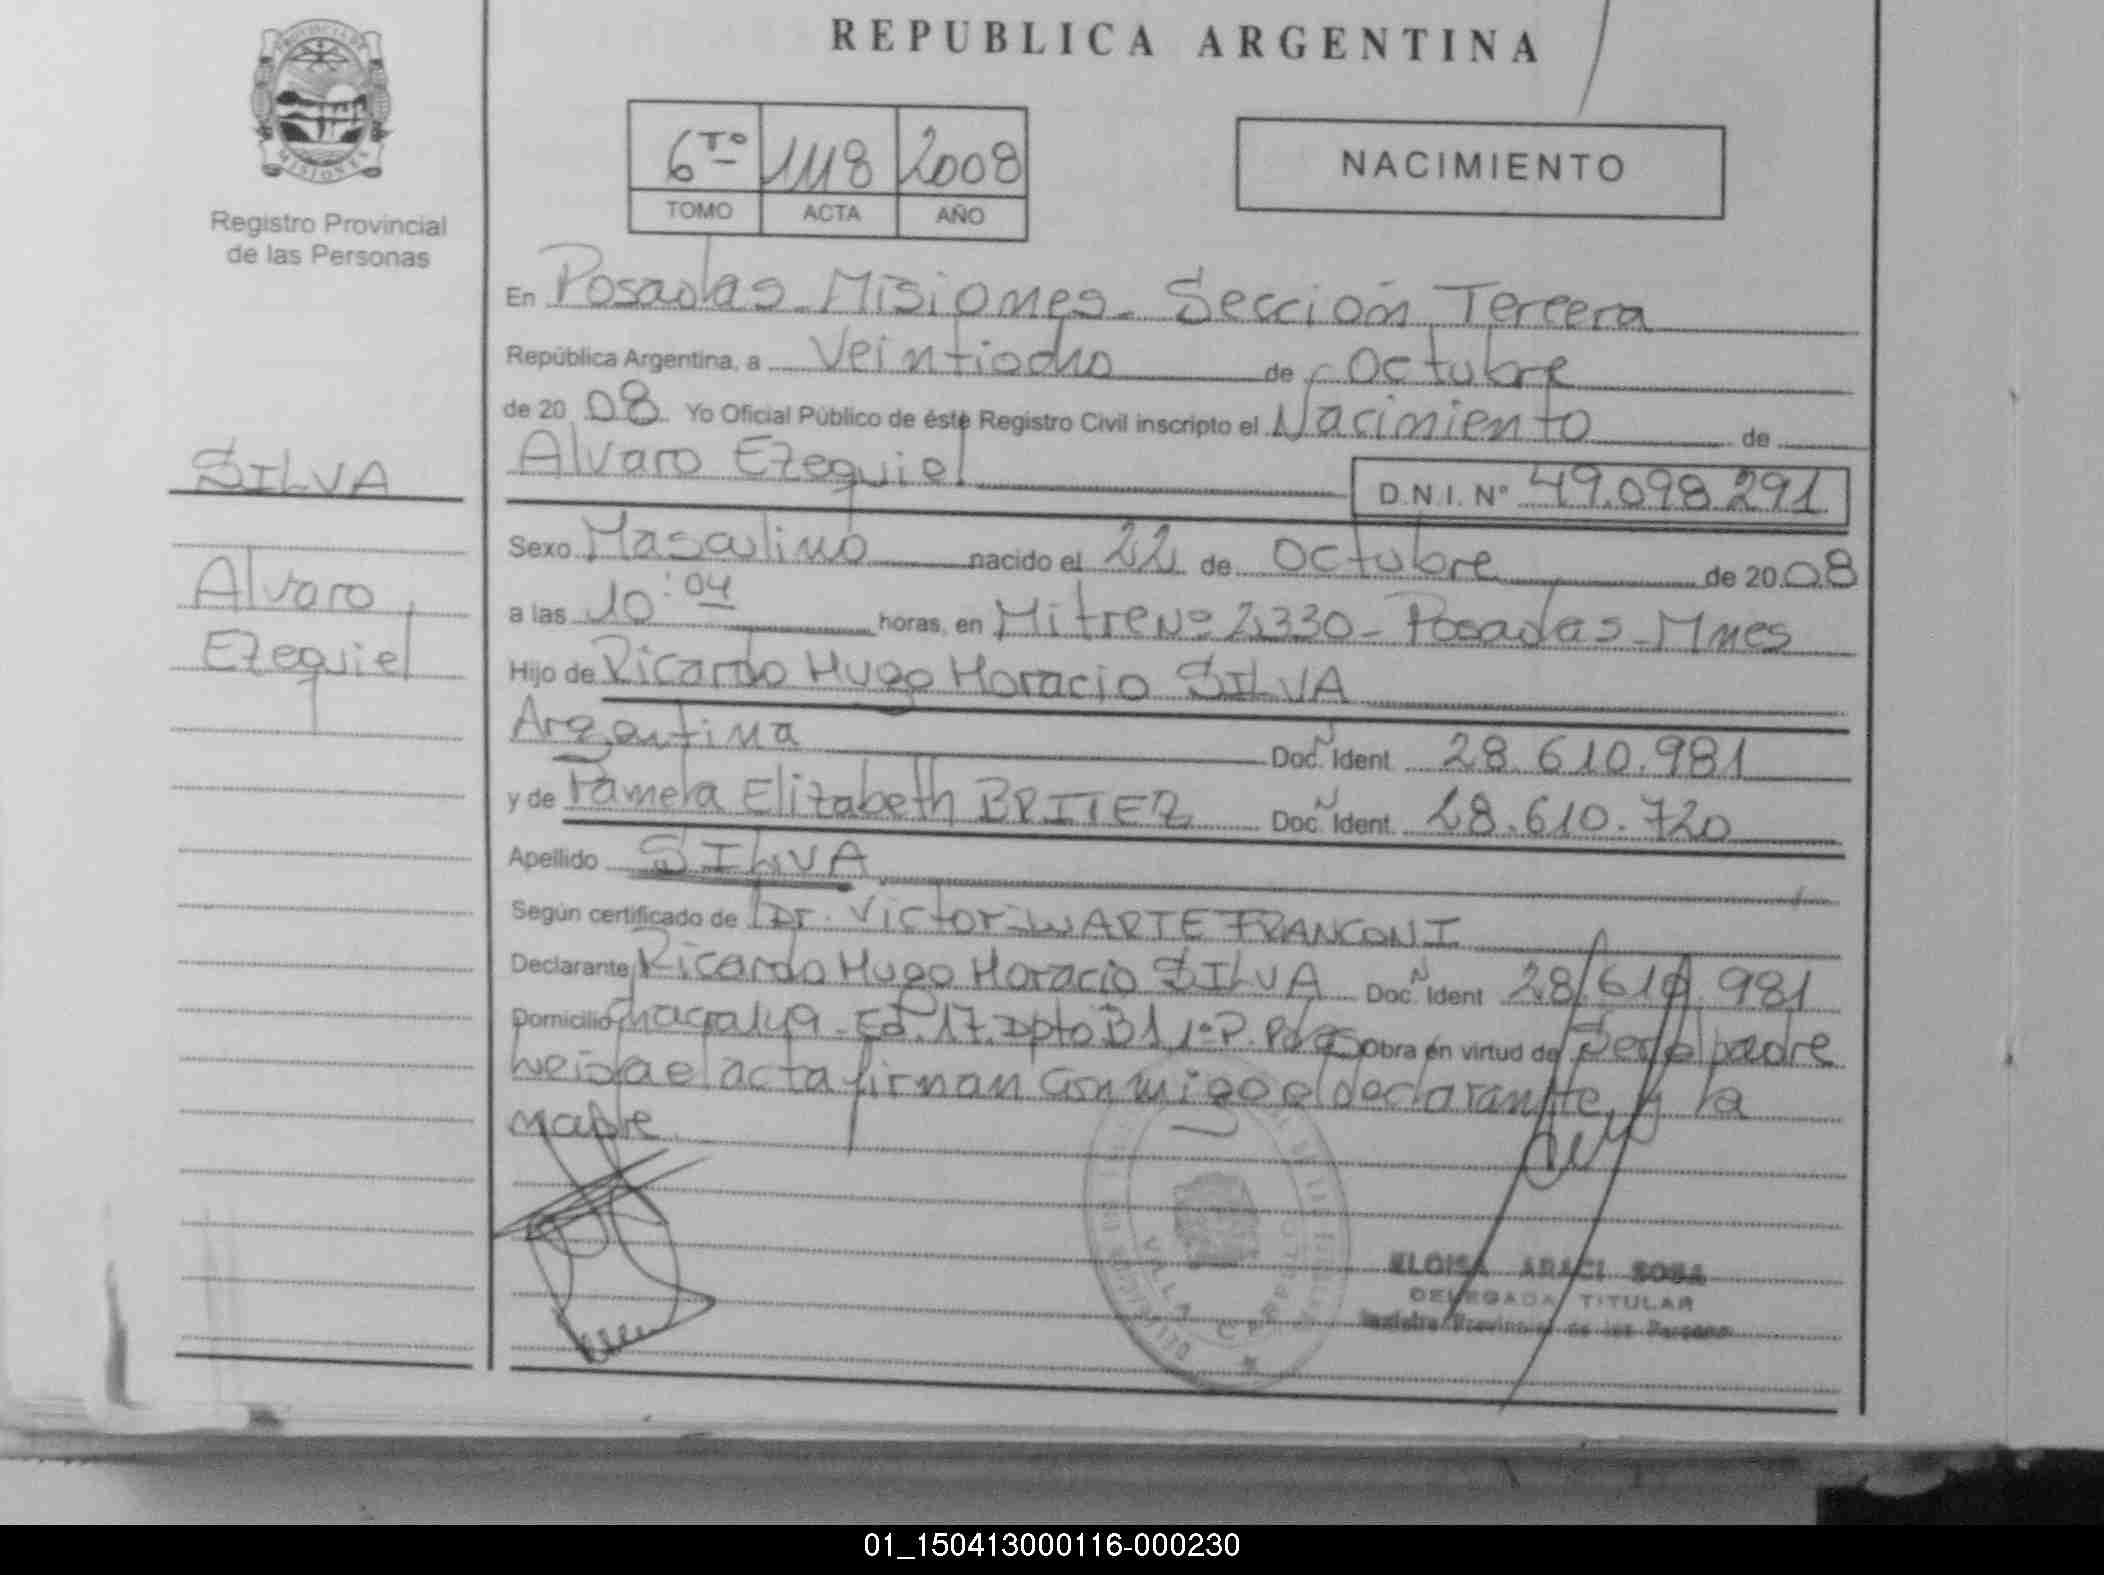 REPUBLICA ARGENTINA
PROVINCIA DE
MISIONES
Registro Provincial
de las Personas
6to 1118 2008
TOMO ACTA AÑO
NACIMIENTO
En Posadas - Misiones - Sección Tercera
República Argentina, a Veintiocho de Octubre
de 20 08 Yo Oficial Público de éste Registro Civil inscripto el Nacimiento de
Alvaro Ezequiel D.N.I. Nº 49.098.291
SILVA
Alvaro
Ezequiel
Sexo Masculino nacido el 22 de Octubre de 20 08
a las 10:04 horas, en Mitre Nº 2330 - Posadas - Mnes
Hijo de Ricardo Hugo Horacio SILVA
Argentina Doc. Ident. N 28.610.981
y de Pamela Elizabeth BRITEZ Doc. Ident. N 28.610.720
Apellido SILVA
Según certificado de Dr. Victor FRANCONI
Declarante Ricardo Hugo Horacio SILVA Doc. Ident N 28.610.981
Domicilio Ed. 17. Dpto B1 1º P. Pdas Obra en virtud de Ser el padre
leida el acta firman conmigo el declarante, y la
madre
VILLA CABELLO
ELOISA ARACI SOSA
DELEGADA TITULAR
Registro Provincial de las Personas
01_150413000116-000230